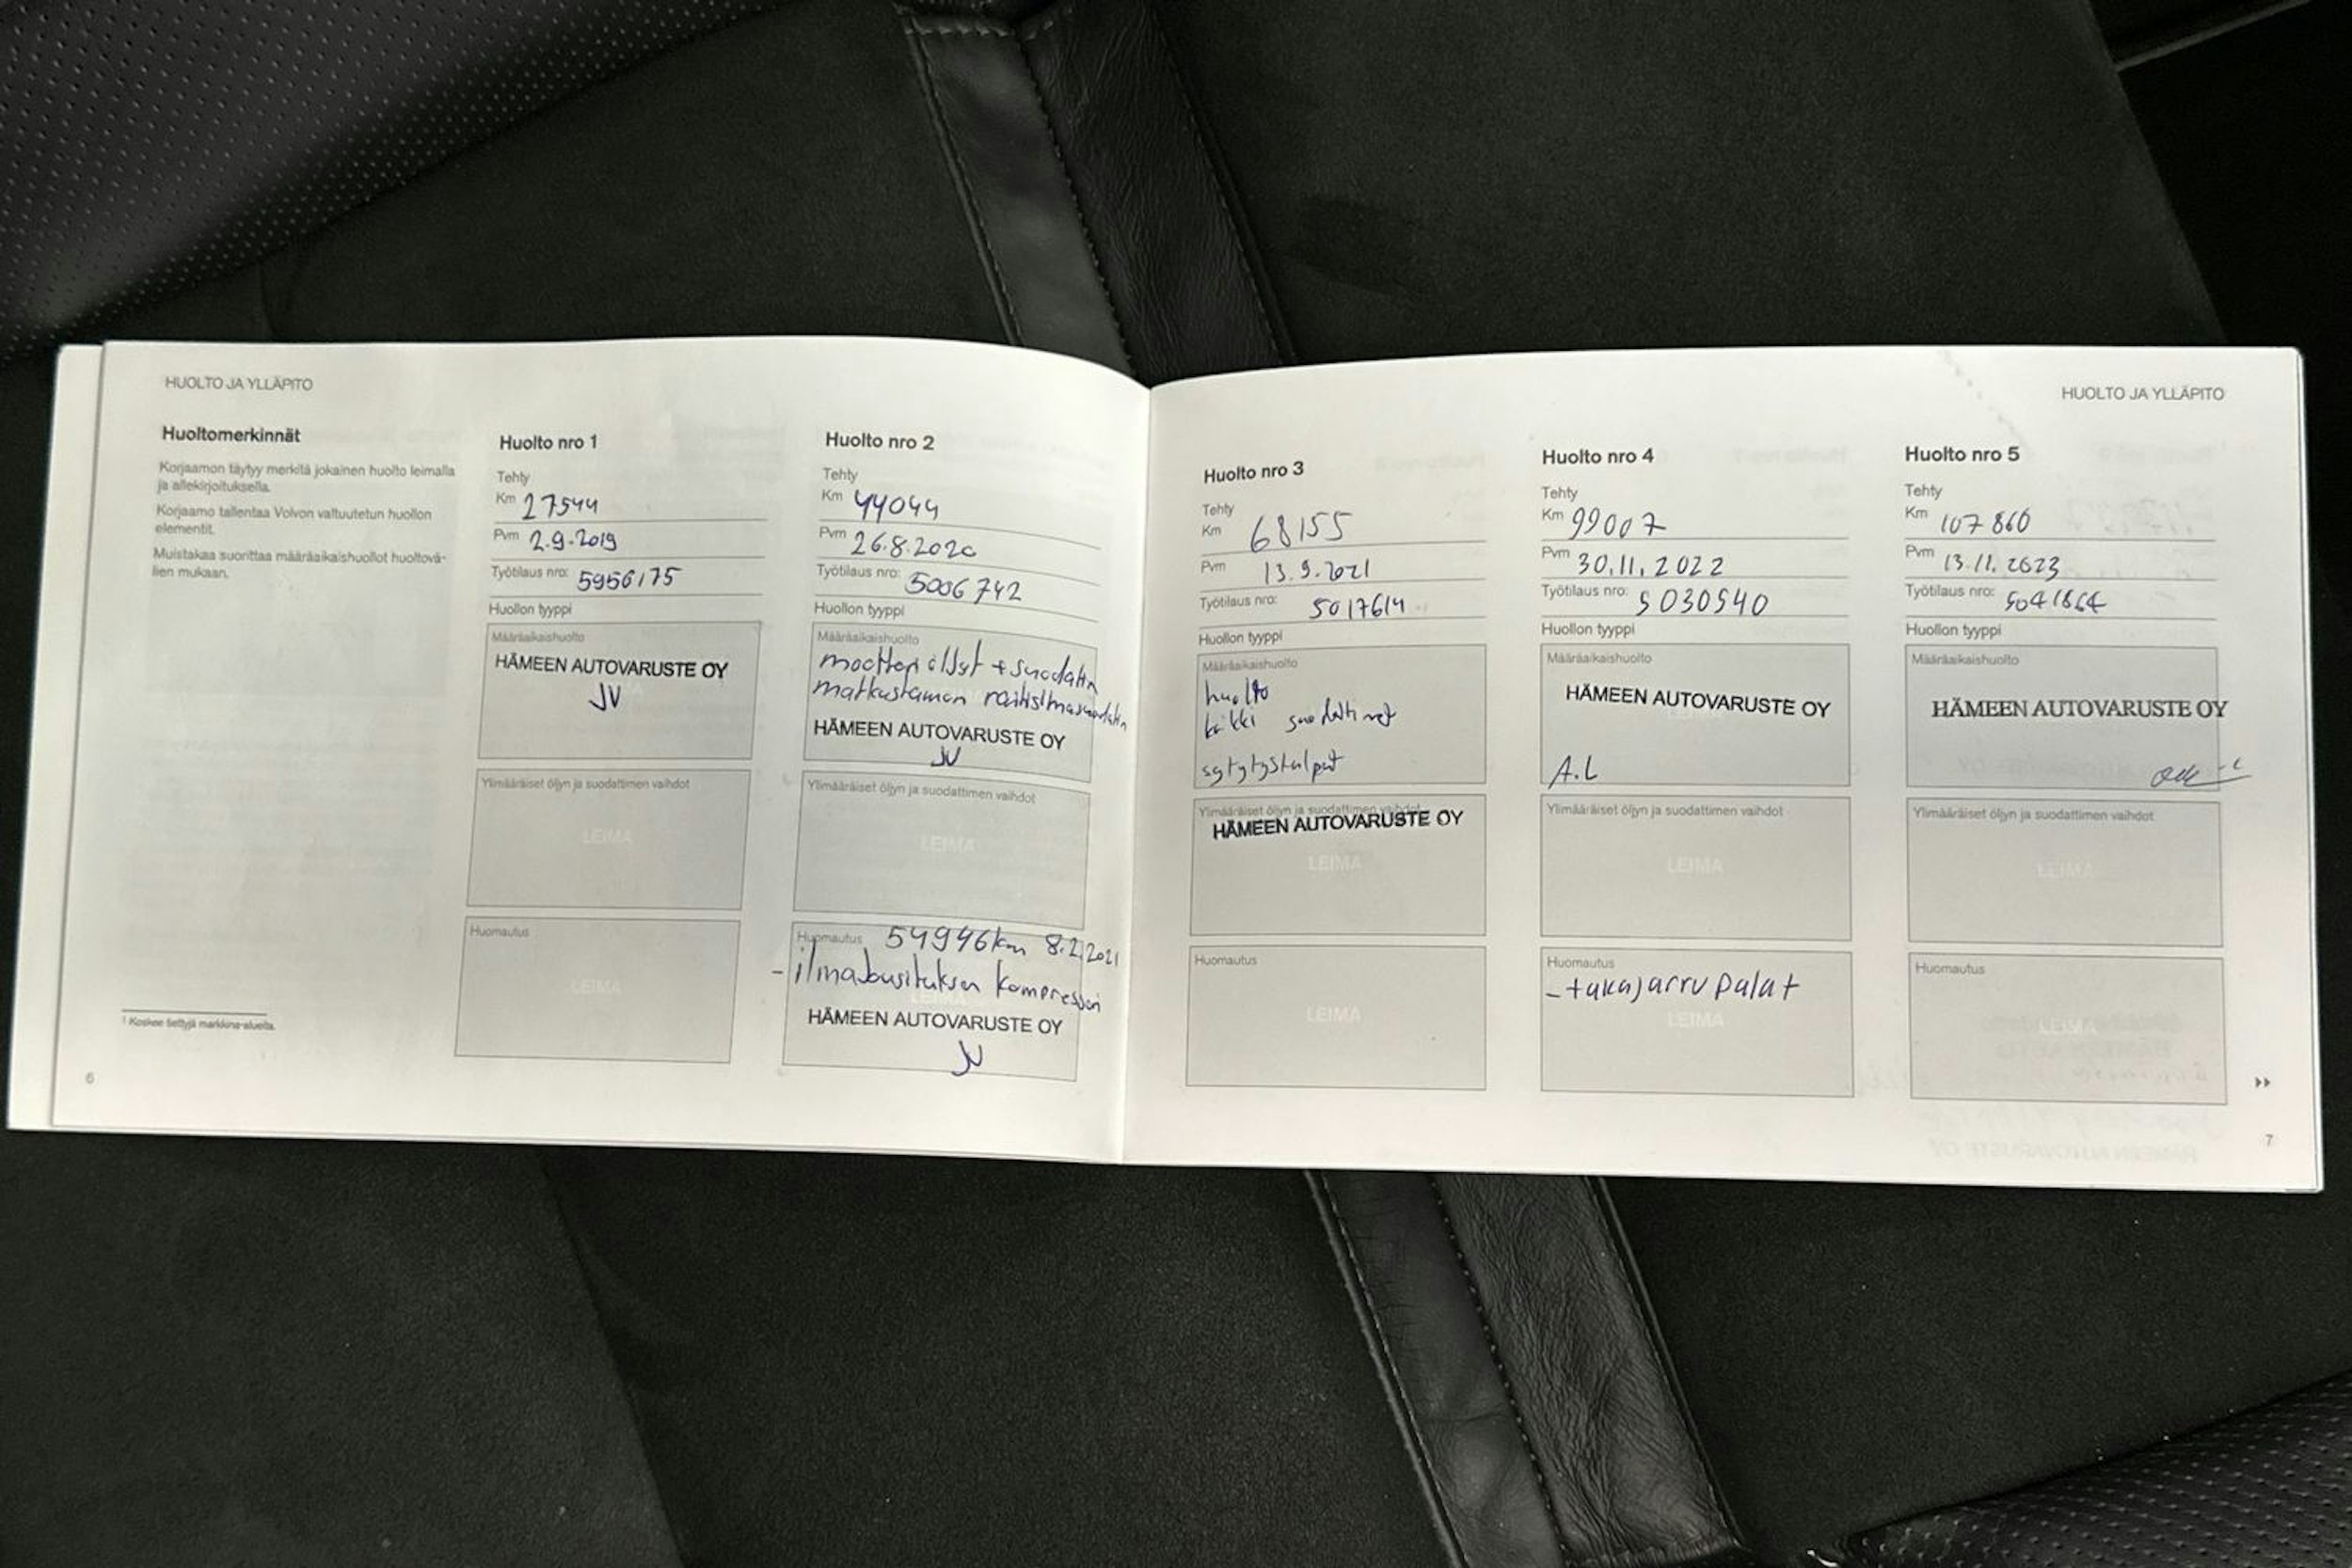 HUOLTO JA YLLÄPITO
Huoltomerkinnät
Korjaamon täytyy merkitä jokainen huolto leimalla
ja allekirjoituksella.
Korjaamo tallentaa Volvon valtuutetun huollon
elementit.
Muistakaa suorittaa määräaikaishuollot huoltovä-
lien mukaan.
1 Koskee tiettyjä markkina-alueita.
6
Huolto nro 1
Tehty
Km 27544
Pvm 2.9.2019
Työtilaus nro: 5956175
Huollon tyyppi
Määräaikaishuolto
HÄMEEN AUTOVARUSTE OY
JV
Ylimääräiset öljyn ja suodattimen vaihdot
LEIMA
Huomautus
LEIMA
Huolto nro 2
Tehty
Km 44044
Pvm 26.8.2020
Työtilaus nro: 5006742
Huollon tyyppi
Määräaikaishuolto
moottori öljyt + suodatin
matkustamon raitisilmasuodatin
HÄMEEN AUTOVARUSTE OY
JV
Ylimääräiset öljyn ja suodattimen vaihdot
LEIMA
Huomautus 54946km 8.2.2021
- ilmajousituksen kompressori
LEIMA
HÄMEEN AUTOVARUSTE OY
JV
HUOLTO JA YLLÄPITO
Huolto nro 3
Tehty
Km 68155
Pvm 13.9.2021
Työtilaus nro: 5017614
Huollon tyyppi
Määräaikaishuolto
huolto
kaikki suodattimet
sytytystulpat
Ylimääräiset öljyn ja suodattimen vaihdot
HÄMEEN AUTOVARUSTE OY
LEIMA
Huomautus
LEIMA
Huolto nro 4
Tehty
Km 99007
Pvm 30.11.2022
Työtilaus nro: 5030540
Huollon tyyppi
Määräaikaishuolto
HÄMEEN AUTOVARUSTE OY
A.L
Ylimääräiset öljyn ja suodattimen vaihdot
LEIMA
Huomautus
- takajarru palat
LEIMA
Huolto nro 5
Tehty
Km 107860
Pvm 13.11.2023
Työtilaus nro:
Huollon tyyppi
Määräaikaishuolto
HÄMEEN AUTOVARUSTE OY
Ylimääräiset öljyn ja suodattimen vaihdot
LEIMA
Huomautus
LEIMA
7